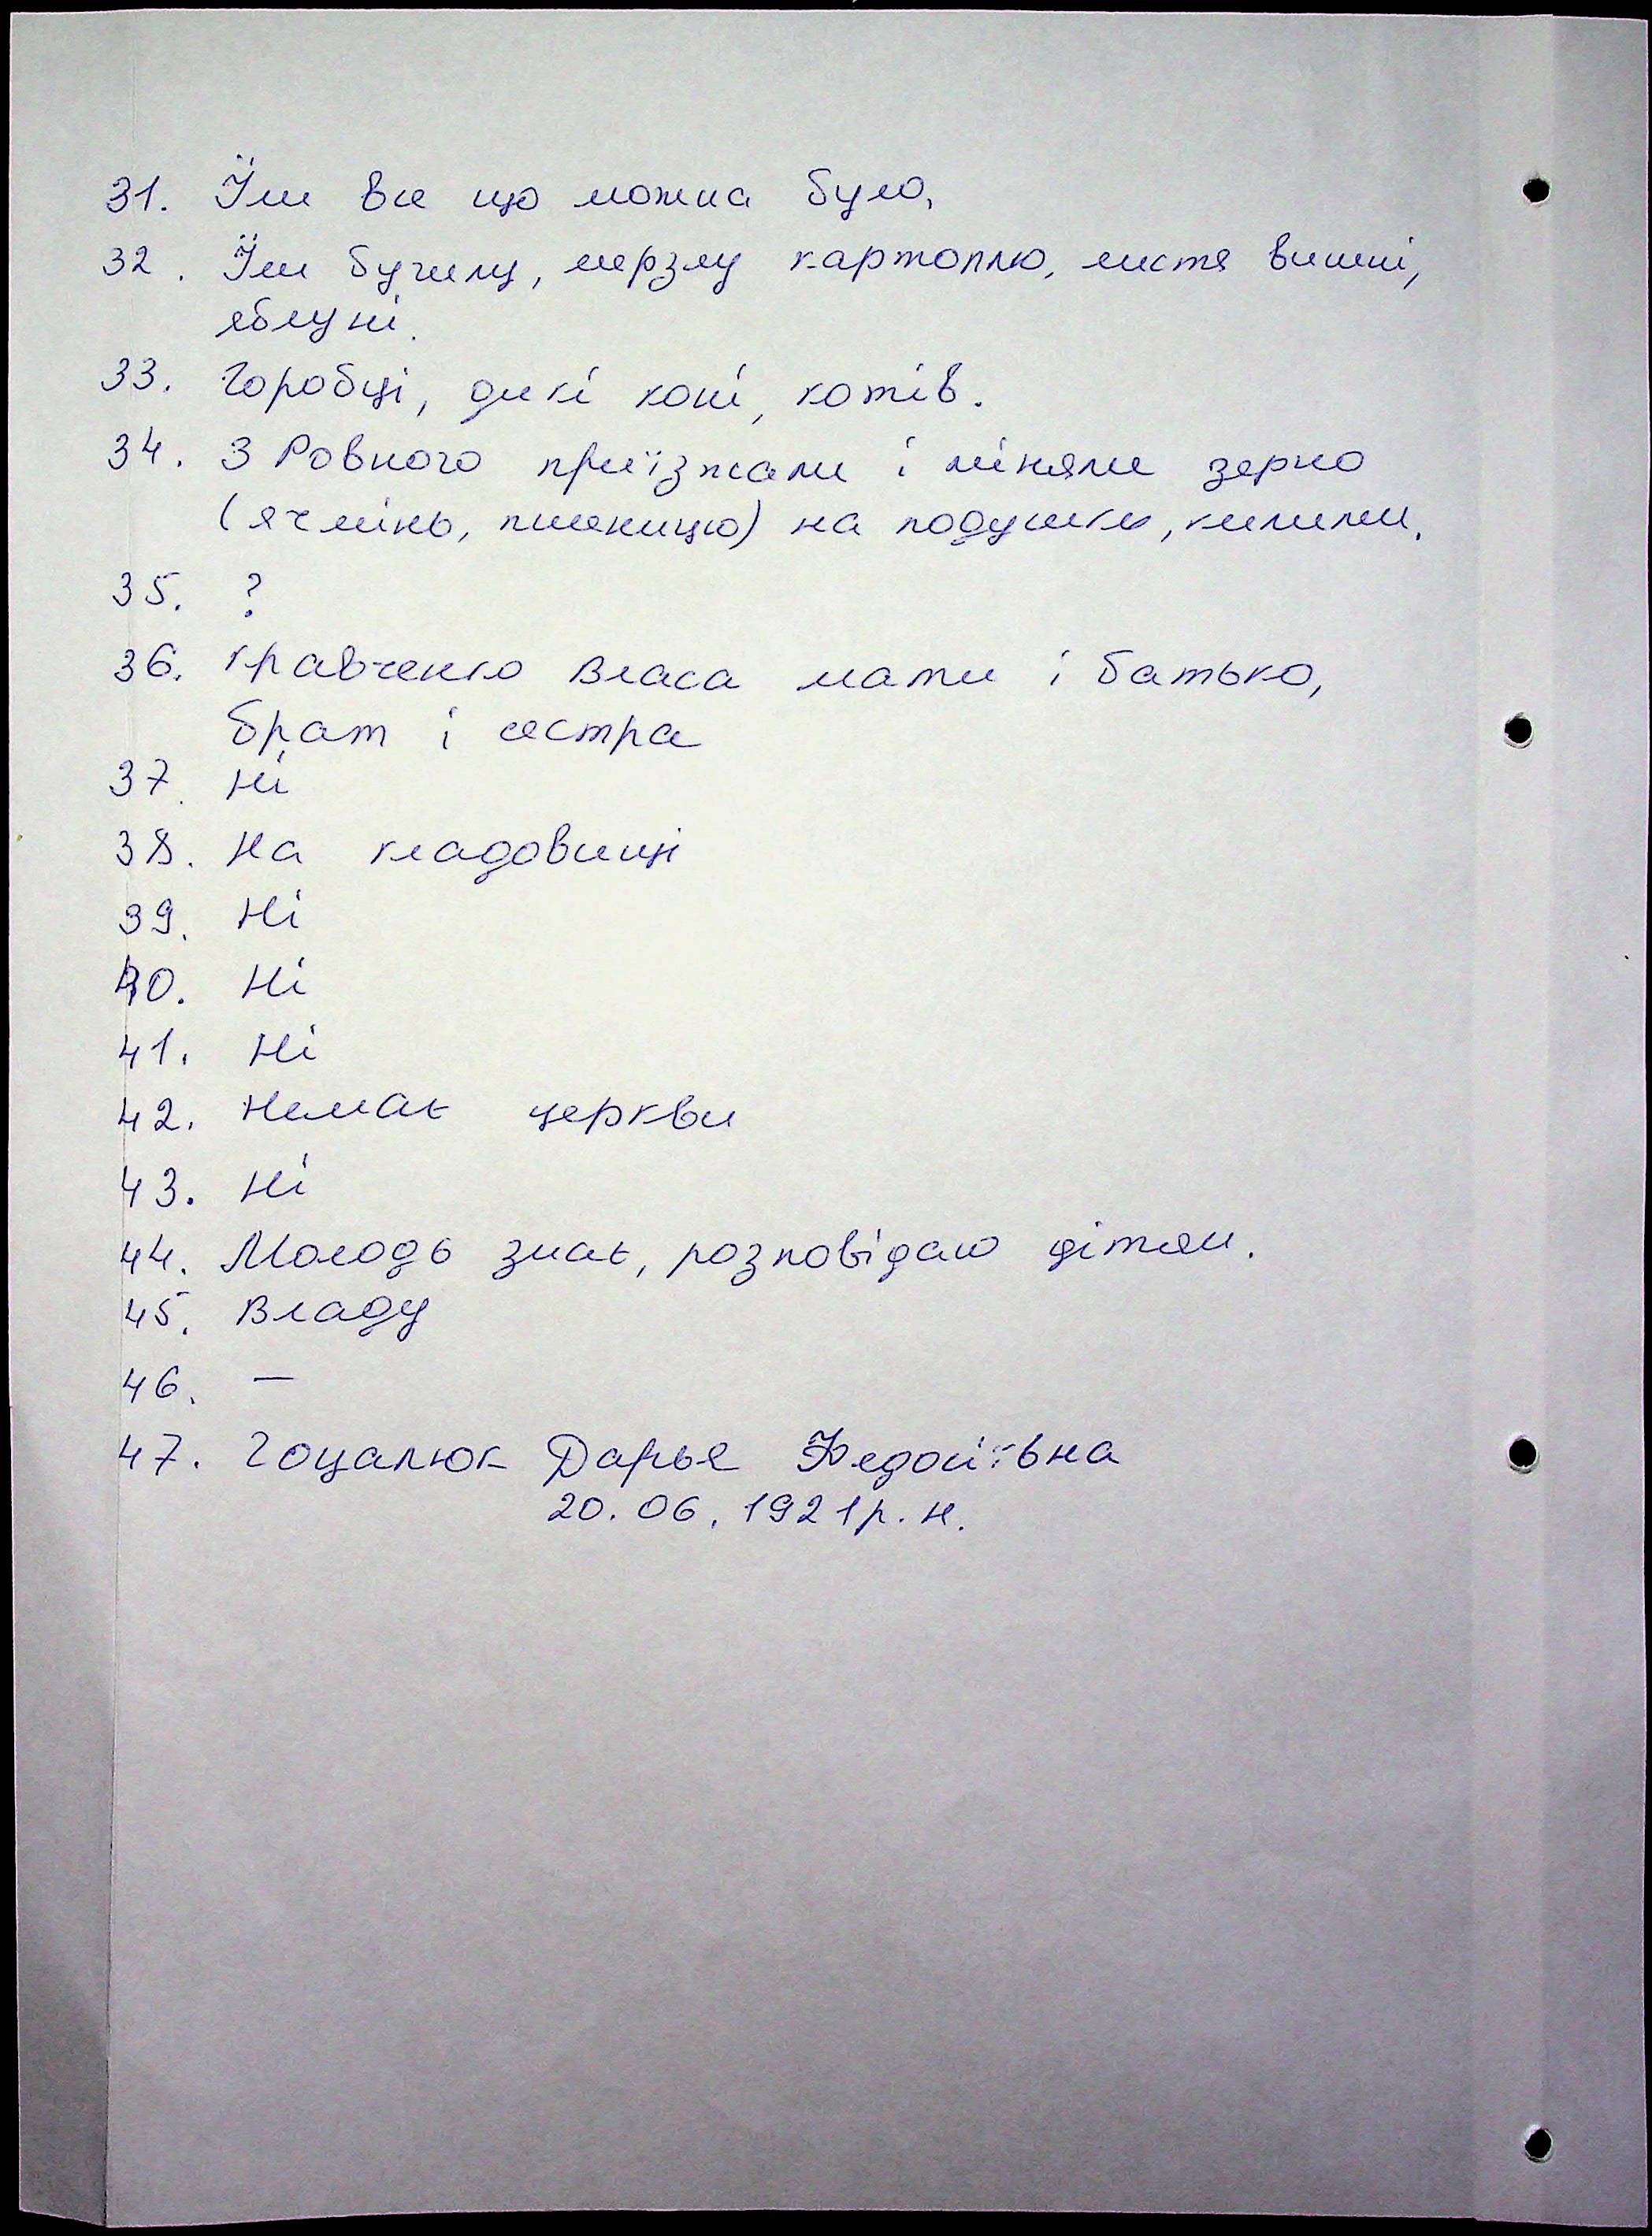 31. Їли все що можна було,
32. Їли бучилу, мерзлу картоплю, листя вишні,
яблуні.
33. Горобці, дикі коні, котів.
34. З Ровного приїзжали і міняли зерно
(ячмінь, пшеницю) на подушки, килими.
35. ?
36. Кравченко Власа мати і батько,
брат і сестра
37. Ні
38. На кладовищі
39. Ні
40. Ні
41. Ні
42. Немає церкви
43. Ні
44. Молодь знає, розповідаю дітям.
45. Владу
46. —
47. Гоцалюк Дарья Федосіївна
20.06.1921р.н.